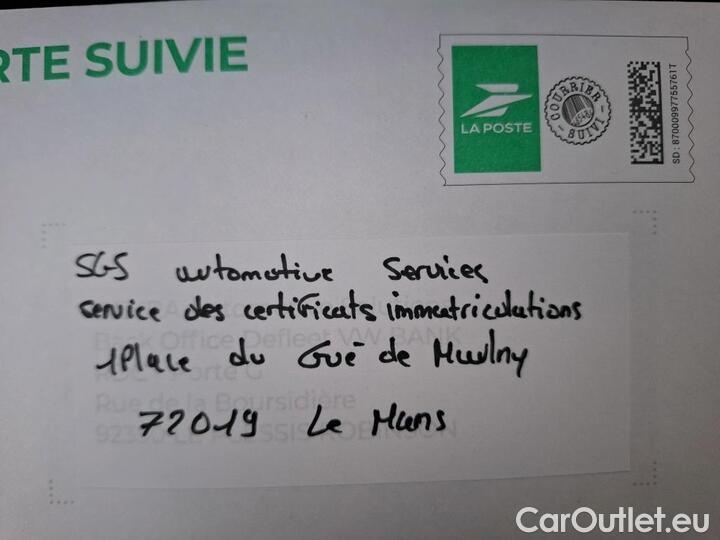 RTE SUIVIE
LA POSTE
COURRIER
SUIVI
SD: 87000997755761T
SGS automotive Services
service des certificats immatriculations
Back Office Defleet VW BANK
1 Place du Gué de Maulny
Rue de la Boursidière
72019 Le Mans
CarOutlet.eu